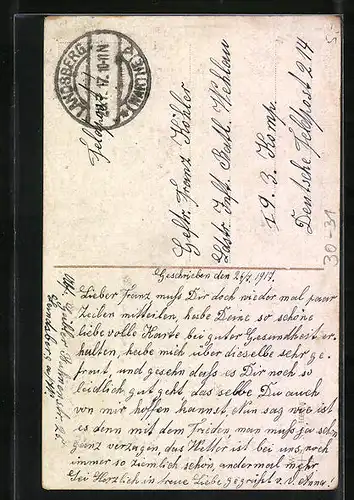 LANDSBERG (WARTHE)
17. 10-11 N
Feldpost
Gefr. Franz Köhler
Ldstr. Inft. Batl. Wehlau
I 9. 3. Komp.
Deutsche Feldpost 214
30-31
Geschrieben den 26/7. 1917.
Lieber Franz muss Dir doch wieder mal paar
Zeilen mitteilen, habe Deine so schöne
liebevolle Karte bei guter Gesundheit er-
halten, habe mich über dieselbe sehr ge-
freut, und gesehn dass es Dir noch so
leidlich gut geht, das selbe Du auch
von mir hoffen kannst. Nun sag wie ist
es denn mit dem Frieden, man muss ja schon
ganz verzagen, das Wetter ist bei uns noch
immer so ziemlich schön, andermal mehr.
Sei Herzlich in treue Liebe gegrüsst v. D. Anna!
Abs. Köhler
Landsberg